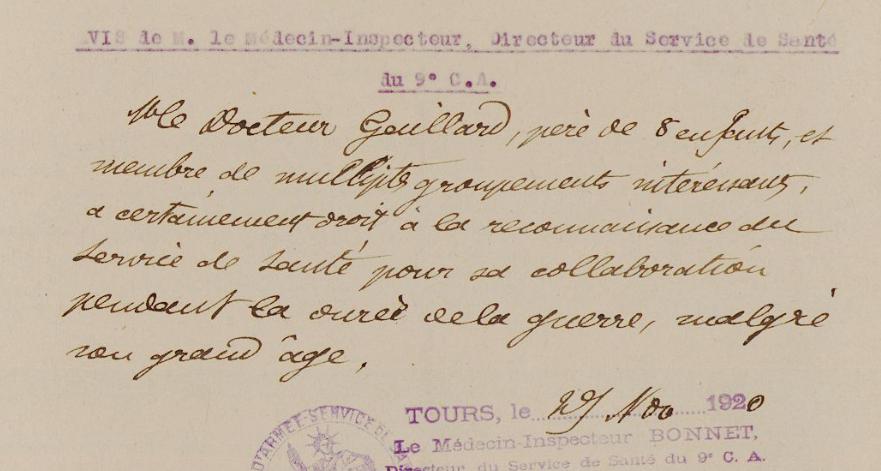 VIS de M. le Médecin-Inspecteur, Directeur du Service de Santé
du 9e C.A.
Mr le Docteur Gaillard, père de 8 enfants, et
membre de multiples groupements intéressants,
a certainement droit à la reconnaissance du
Service de Santé pour sa collaboration
pendant la durée de la guerre, malgré
son grand âge.
TOURS, le Nov 1920
Le Médecin-Inspecteur BONNET,
Directeur du Service de Santé du 9e C. A.
D'ARMÉE SERVICE DE SA